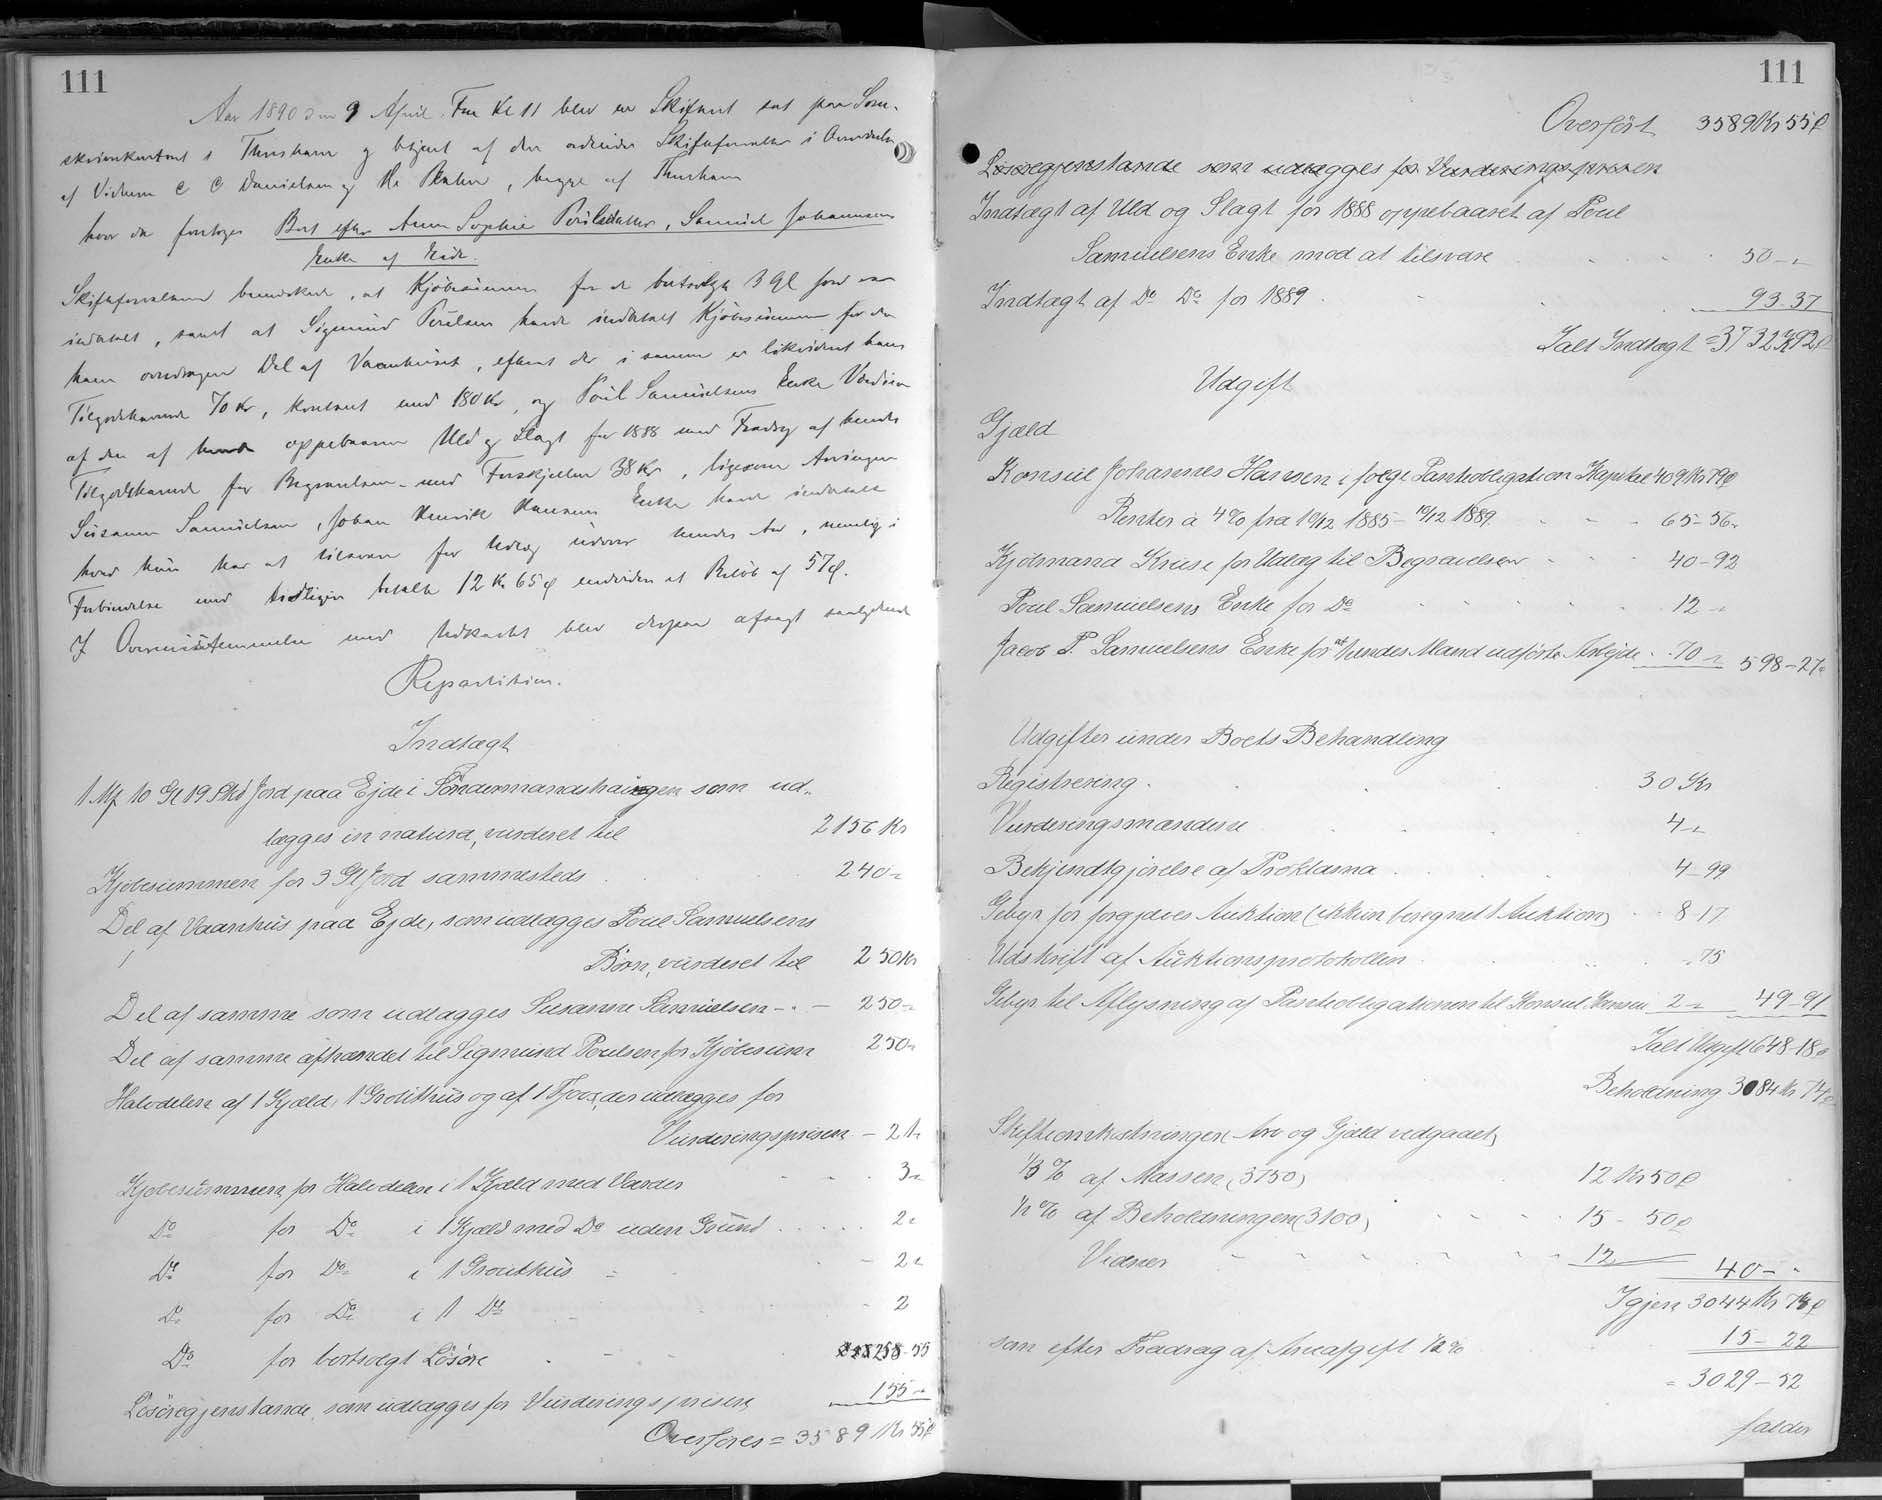 111
Aar 1890 den 9 April Fm Kl 11 blev en Skifteret sat paa Soren-
skriverkontoret i Thorshavn og betjent af den ordinære Skifteforvalter i Overværelse
af Vidnerne C C Danielsen og , begge af Thorshavn
hvor da foretoges Boet efter Anna Sophie Poulsdatter, Samuel Johannesens
Enke af Eide.
Skifteforvalteren bemærkede, at Kjöbesummen for de bortsolgte 3 Gl Jord var
indbetalt, samt at Sigmund Poulsen havde indbetalt Kjöbesummen for den
ham overdragne Del af Vaanhuset, efterat der i samme er likvideret hans
Tilgodehavende 70 Kr, kontant med 180 Kr, og Poul Samuelsens Enke Værdien
af den af hende oppebaarne Uld og Slagt for 1888 med Fradrag af hendes
Tilgodehavende for Begravelsen med Forskjellen 38 Kr, ligesom Arvingen
Susanne Samuelsen, Johan Henrik Hansens Enke havde indbetalt
hvad hun har at tilsvare for Udlæg udover hendes Arv, nemlig i
Forbindelse med tidligere betalte 12 Kr 65 ø endvidere et Beløb af 57 ø.
I Overensstemmelse med Udkastet blev derpaa afsagt saalydende
Repartition.
Indtægt
1 Mk 10 Gl 19 Skd Jord paa Ejde i Söndermandshaugen som ud-
lægges in natura, vurderet til 2156 Kr
Kjöbesummen for 3 Gl Jord sammesteds . 240 "
Del af Vaanhus paa Ejde, som udlægges Poul Samuelsens
Börn, vurderet til 250 Kr
Del af samme som udlægges Susanne Samuelsen - . - 250 "
Del af samme afhændet til Sigmund Poulsen for Kjöbesum 250 "
Halvdelen af 1 Kjæld, 1 Grothus og af 1 Tjoor, der udlægges for
Vurderingsprisen - 21 "
Kjöbesummen for Halvdelen i 1 Kjæld med Varder 3 "
Do for Do i 1 Kjæld med Do uden Grund 2 "
Do for Do i 1 Grouthus - 2 "
Do for Do i 1 Do - 2
Do for bortsolgt Lösöre 258-55
Lösöregjenstande, som udlægges for Vurderingsprisen 155 "
Overföres = 3589 Kr 55 ø
111
Overfört 3589 Kr 55 ø
Lösöregjenstande som udlægges for Vurderingsprisen
Indtægt af Uld og Slagt for 1888 oppebaaret af Poul
Samuelsens Enke mod at tilsvare 50 - "
Indtægt af Do Do for 1889 . 93-37
Ialt Indtægt = 3732 Kr 92 ø
Udgift
Gjæld
Konsul Johannes Hansen ifølge Panteobligation Kapital 409 Kr 79 ø
Renter à 4% fra 10/12 1885 - 10/12 1889 65-56 "
Kjöbmand Kruse for Udlæg til Begravelsen 40-92
Poul Samuelsens Enke for Do 12 - "
Jacob P. Samuelsens Enke for af hendes Mand udförte Arbejde 70 " 598-27 "
Udgifter under Boets Behandling
Registrering . 30 Kr
Vurderingsmændene 4 "
Bekjendtgjörelse af Proklama 4-99
Gebyr for forgjeves Auktion (ikkun beregnet 1 Auktion) 8-17
Udskrift af Auktionsprotokollen 75
Gebyr til Aflysning af Panteobligationen til Konsul Hansen 2 " 49-91
Ialt Udgift 648-18 ø
Beholdning 3084 Kr 74 ø
Skifteomkostninger (Arv og Gjæld vedgaaet)
1/3 % af Massen (3750) 12 Kr 50 ø
1/2 % af Beholdningen (3100) 15 - 50 ø
Vidner 12 40 - "
Igjen 3044 Kr 74 ø
som efter Fradrag af Arveafgift 1/2 % 15-22
= 3029-52
falder